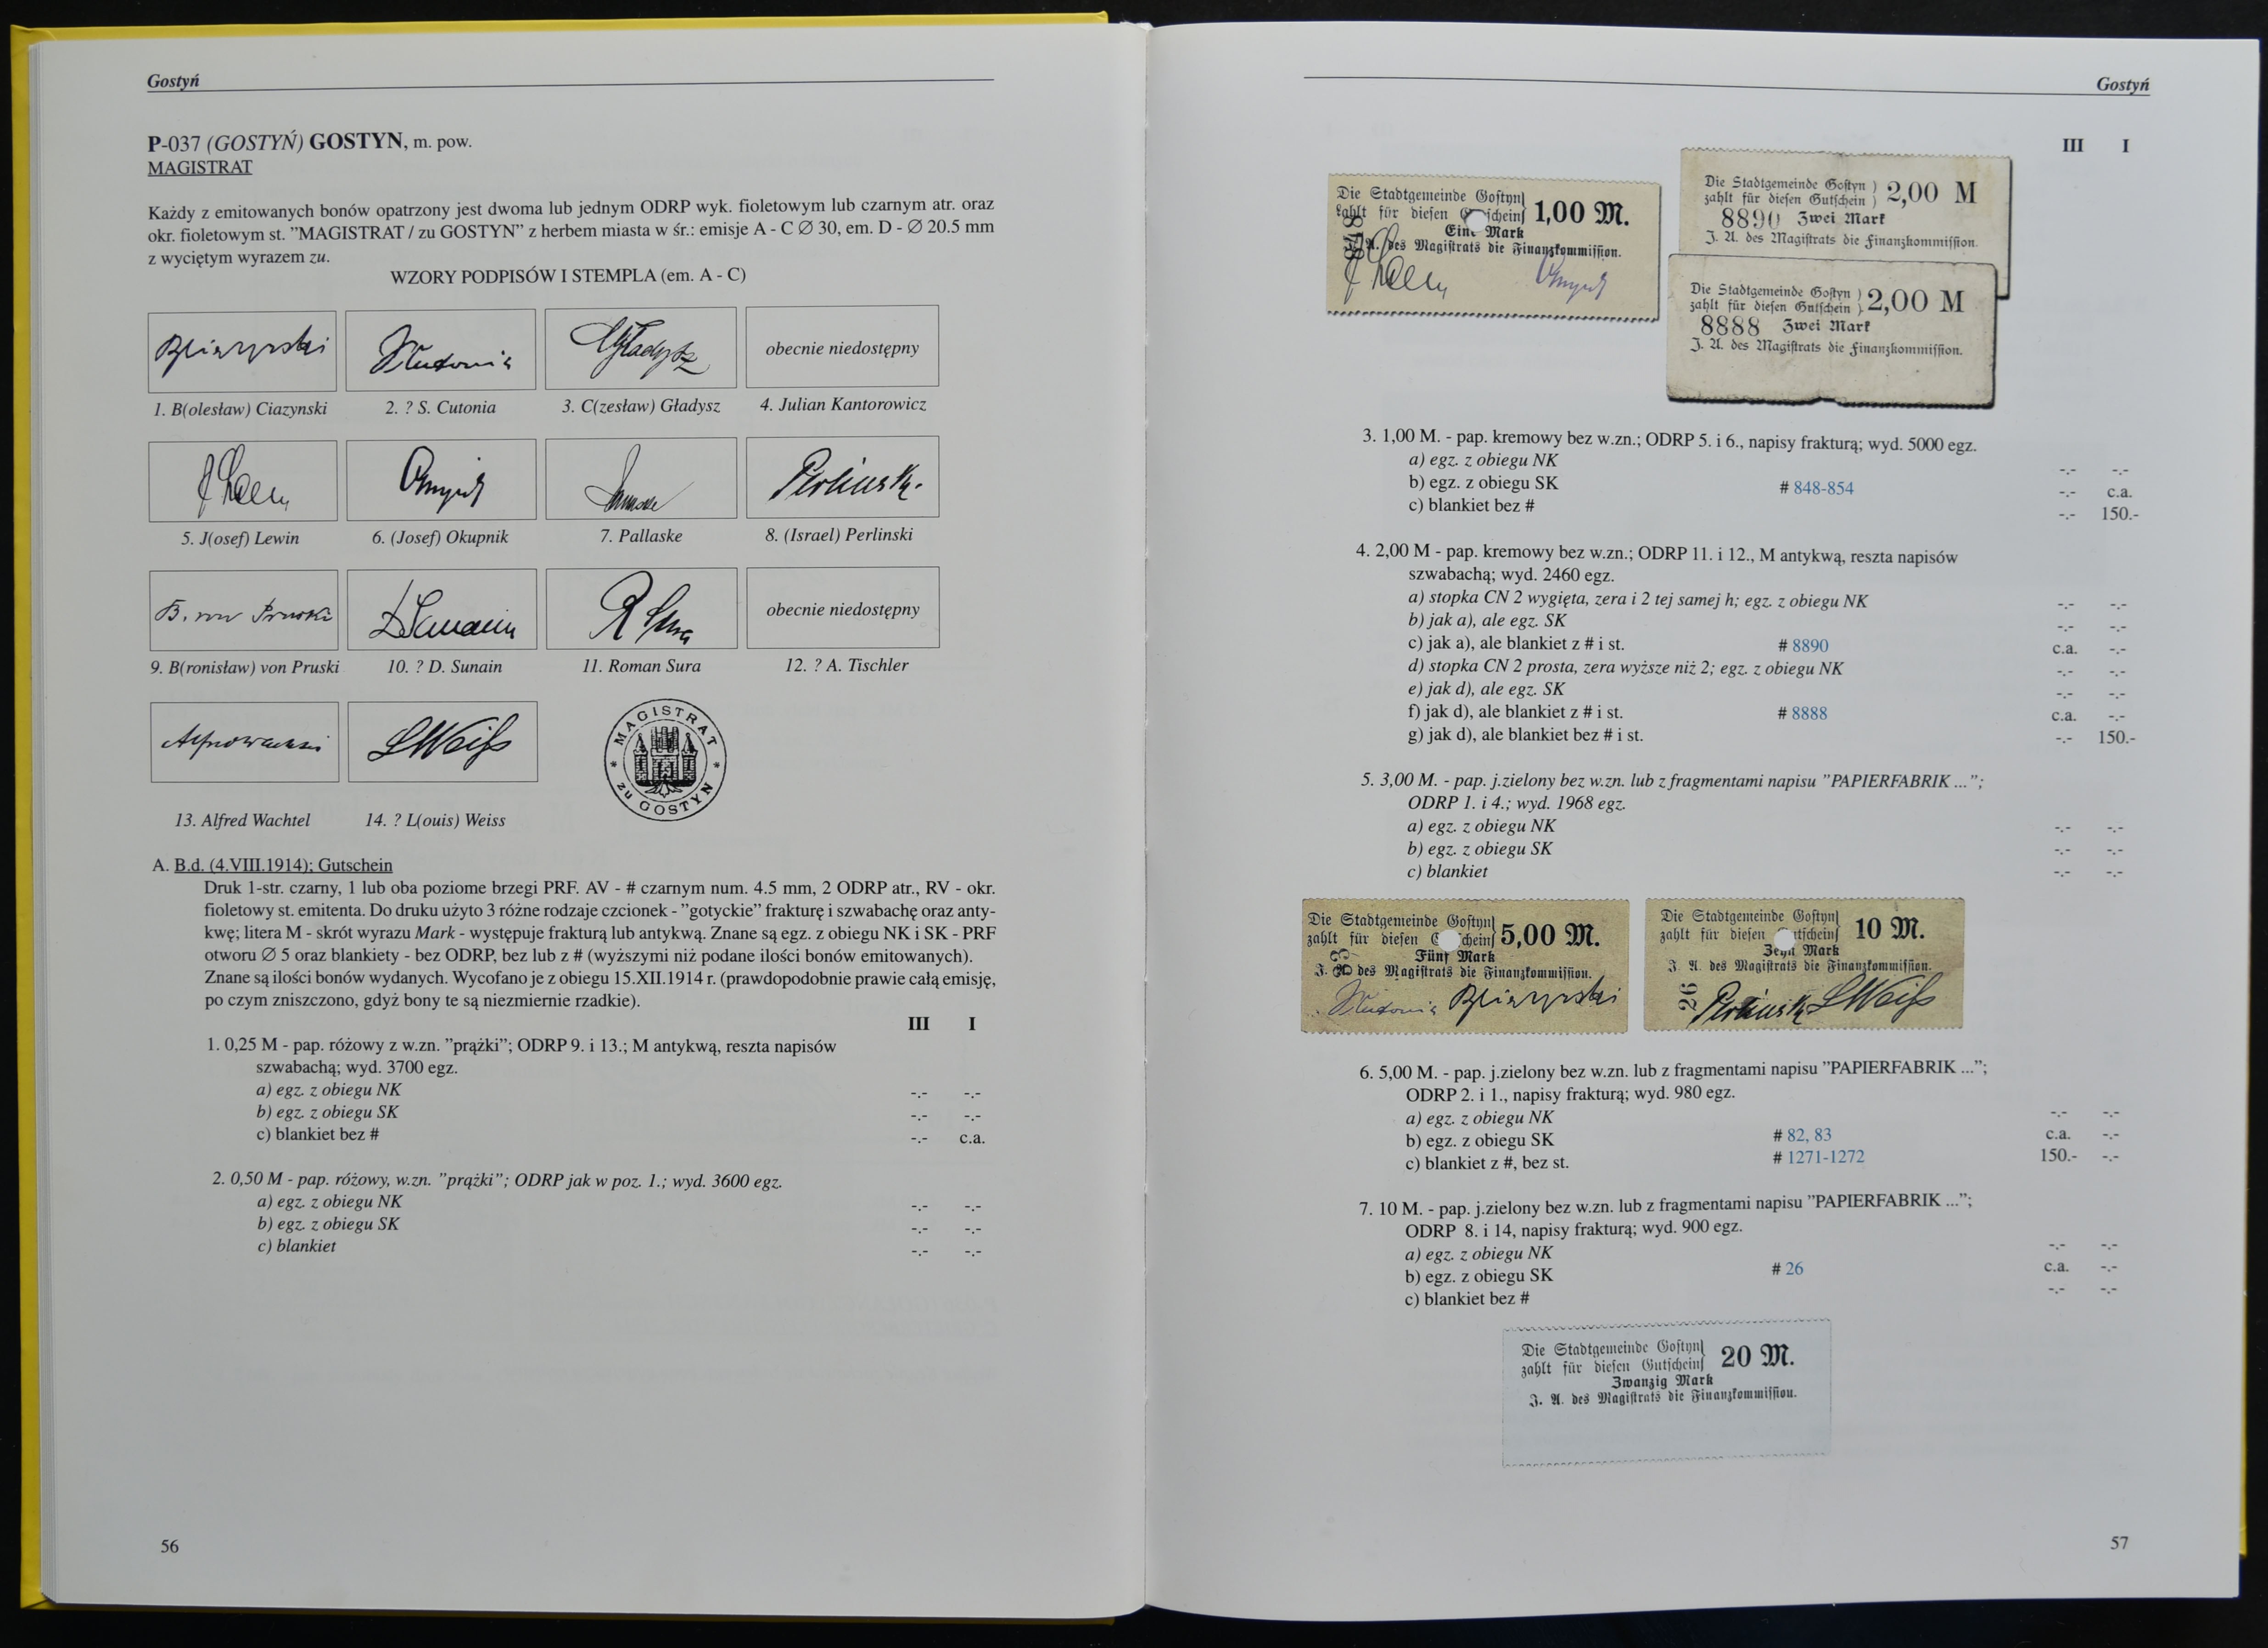 Gostyń
P-037 (GOSTYŃ) GOSTYN, m. pow.
MAGISTRAT
Każdy z emitowanych bonów opatrzony jest dwoma lub jednym ODRP wyk. fioletowym lub czarnym atr. oraz
okr. fioletowym st. ”MAGISTRAT / zu GOSTYN” z herbem miasta w śr.: emisje A - C Ø 30, em. D - Ø 20.5 mm
z wyciętym wyrazem zu.
WZORY PODPISÓW I STEMPLA (em. A - C)
obecnie niedostępny
1. B(olesław) Ciazynski
2. ? S. Cutonia
3. C(zesław) Gładysz
4. Julian Kantorowicz
5. J(osef) Lewin
6. (Josef) Okupnik
7. Pallaske
8. (Israel) Perlinski
obecnie niedostępny
9. B(ronisław) von Pruski
10. ? D. Sunain
11. Roman Sura
12. ? A. Tischler
MAGISTRAT * zu GOSTYN *
13. Alfred Wachtel
14. ? L(ouis) Weiss
A. B.d. (4.VIII.1914); Gutschein
Druk 1-str. czarny, 1 lub oba poziome brzegi PRF. AV - # czarnym num. 4.5 mm, 2 ODRP atr., RV - okr.
fioletowy st. emitenta. Do druku użyto 3 różne rodzaje czcionek - ”gotyckie” frakturę i szwabachę oraz anty-
kwę; litera M - skrót wyrazu Mark - występuje frakturą lub antykwą. Znane są egz. z obiegu NK i SK - PRF
otworu Ø 5 oraz blankiety - bez ODRP, bez lub z # (wyższymi niż podane ilości bonów emitowanych).
Znane są ilości bonów wydanych. Wycofano je z obiegu 15.XII.1914 r. (prawdopodobnie prawie całą emisję,
po czym zniszczono, gdyż bony te są niezmiernie rzadkie).
III I
1. 0,25 M - pap. różowy z w.zn. ”prążki”; ODRP 9. i 13.; M antykwą, reszta napisów
szwabachą; wyd. 3700 egz.
a) egz. z obiegu NK -.- -.-
b) egz. z obiegu SK -.- -.-
c) blankiet bez # -.- c.a.
2. 0,50 M - pap. różowy, w.zn. ”prążki”; ODRP jak w poz. 1.; wyd. 3600 egz.
a) egz. z obiegu NK -.- -.-
b) egz. z obiegu SK -.- -.-
c) blankiet -.- -.-
56
Gostyń
III I
Die Stadtgemeinde Gostyn
zahlt für diesen Gutschein 1,00 M.
Eine Mark
J. A. des Magistrats die Finanzkommission.
Die Stadtgemeinde Gostyn )
zahlt für diesen Gutschein ) 2,00 M
8890 Zwei Mark
J. A. des Magistrats die Finanzkommission.
Die Stadtgemeinde Gostyn )
zahlt für diesen Gutschein ) 2,00 M
8888 Zwei Mark
J. A. des Magistrats die Finanzkommission.
3. 1,00 M. - pap. kremowy bez w.zn.; ODRP 5. i 6., napisy frakturą; wyd. 5000 egz.
a) egz. z obiegu NK -.- -.-
b) egz. z obiegu SK # 848-854 -.- c.a.
c) blankiet bez # -.- 150.-
4. 2,00 M - pap. kremowy bez w.zn.; ODRP 11. i 12., M antykwą, reszta napisów
szwabachą; wyd. 2460 egz.
a) stopka CN 2 wygięta, zera i 2 tej samej h; egz. z obiegu NK -.- -.-
b) jak a), ale egz. SK -.- -.-
c) jak a), ale blankiet z # i st. # 8890 c.a. -.-
d) stopka CN 2 prosta, zera wyższe niż 2; egz. z obiegu NK -.- -.-
e) jak d), ale egz. SK -.- -.-
f) jak d), ale blankiet z # i st. # 8888 c.a. -.-
g) jak d), ale blankiet bez # i st. -.- 150.-
5. 3,00 M. - pap. j.zielony bez w.zn. lub z fragmentami napisu ”PAPIERFABRIK ...”;
ODRP 1. i 4.; wyd. 1968 egz.
a) egz. z obiegu NK -.- -.-
b) egz. z obiegu SK -.- -.-
c) blankiet -.- -.-
Die Stadtgemeinde Gostyn
zahlt für diesen Gutschein 5,00 M.
Fünf Mark
J. A. des Magistrats die Finanzkommission.
Die Stadtgemeinde Gostyn
zahlt für diesen Gutschein 10 M.
Zehn Mark
J. A. des Magistrats die Finanzkommission.
26
6. 5,00 M. - pap. j.zielony bez w.zn. lub z fragmentami napisu ”PAPIERFABRIK ...”;
ODRP 2. i 1., napisy frakturą; wyd. 980 egz.
a) egz. z obiegu NK -.- -.-
b) egz. z obiegu SK # 82, 83 c.a. -.-
c) blankiet z #, bez st. # 1271-1272 150.- -.-
7. 10 M. - pap. j.zielony bez w.zn. lub z fragmentami napisu ”PAPIERFABRIK ...”;
ODRP 8. i 14, napisy frakturą; wyd. 900 egz.
a) egz. z obiegu NK -.- -.-
b) egz. z obiegu SK # 26 c.a. -.-
c) blankiet bez # -.- -.-
Die Stadtgemeinde Gostyn
zahlt für diesen Gutschein 20 M.
Zwanzig Mark
J. A. des Magistrats die Finanzkommission.
57